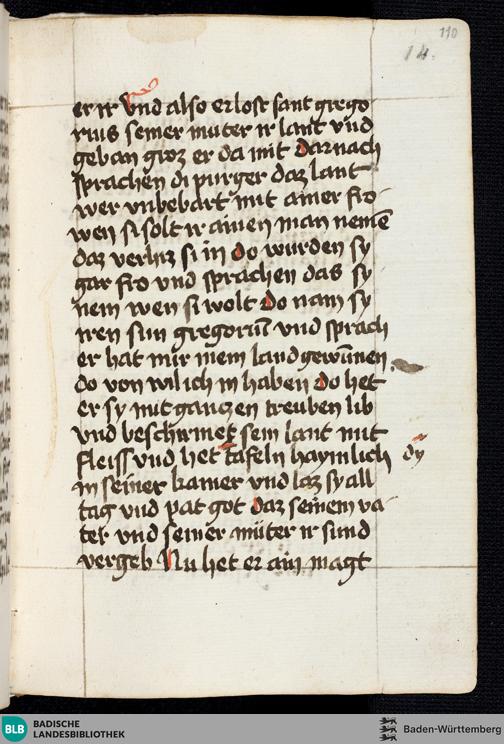 110
14.
er ir Vnd also erlost sant grego
rius seiner muter ir lant vnd
geban groz er da mit darnach
sprachen di purger daz lant
wer vnbebart mit ainer fro
wen si solt ir ainen man nemē
daz verhiz si in do wurden sy
gar fro vnd sprachen das sy
nem wen si wolt do nam sy
iren sun gregoriū vnd sprach
er hat mir mein land gewūnen
do von wil ich in haben do het
er sy mit ganczen treuben lib
vnd beschirmet sein lant mit
fleiss vnd het tafeln haymlich dy
in seiner kamer vnd laz sy all
tag vnd pat got daz seinem va
ter vnd seiner müter ir sund
vergeb Nu het er ain magt
BLB BADISCHE
LANDESBIBLIOTHEK
Baden-Württemberg